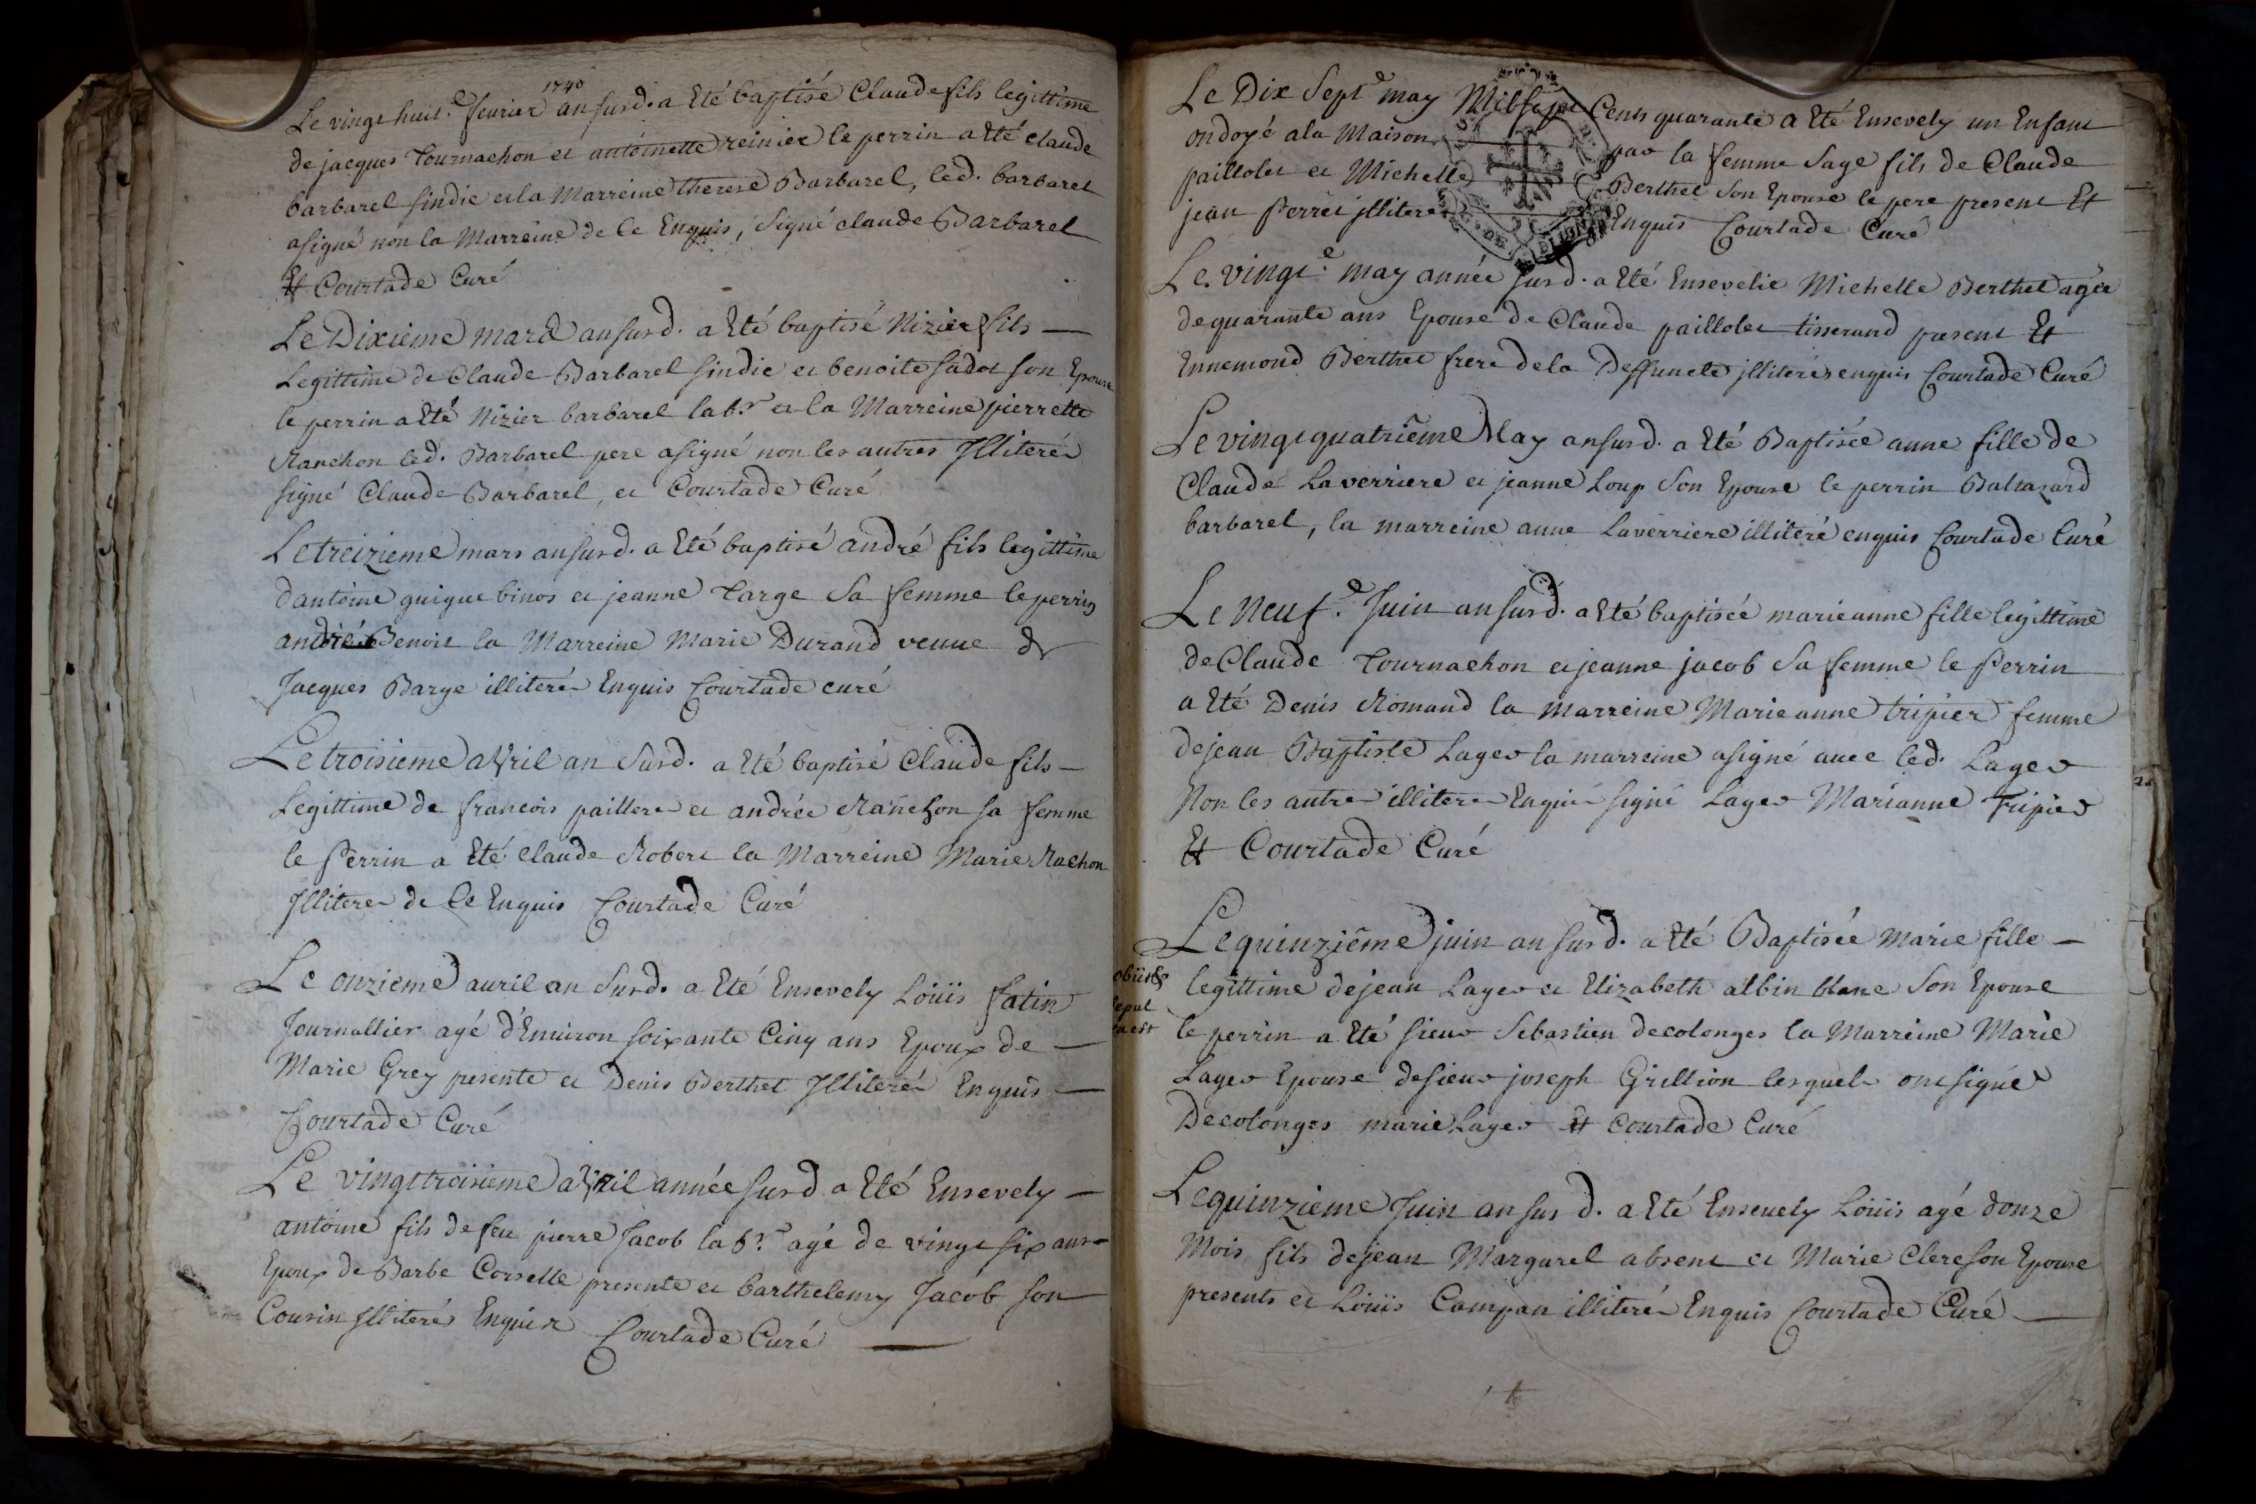 1740
Le vingt huit.e fevrier an susd. a Eté baptisé Claude fils legittime
de jacques Tournachon et antoinette reinier le perrin a Eté claude
barbarel sindic et la Marreine therese Barbarel, led. barbarel
a signé non la Marreine de ce Enquis, Signé claude Barbarel
Et Courtade Curé
Le Dixieme mard an susd. a Eté baptisé Nizier fils —
Legittime de Claude Barbarel sindic et benoite sadot son Epouse
le perrin a Eté Nizier barbarel lab.r et la Marreine pierrette
Ranchon led. Barbarel pere a signé non les autres Jlliterés
signé Claude Barbarel, et Courtade Curé
Le treizieme mars an susd. a Eté baptisé andré fils legittime
d'antoine guigue binos et jeanne Targe Sa femme le perrin
andré Benoit la Marreine Marie Durand veuue de
Jacques Barge illiterés Enquis Courtade curé
Le troisieme aVril an Susd. a Eté baptisé Claude fils —
Legittime de francois paillere et andrée Ranchon sa femme
le Perrin a Eté claude Robert la Marreine Marie Rachon
Jlliteres de Ce Enquis Courtade Curé
Le onzieme auril an Susd. a Eté Ensevely Loüis fatin
Journallier agé d'Enuiron soixante Cinq ans Epoux de —
Marie Grey presente et Denis Berthet Jlliterés Enquis —
Courtade Curé
Le vingt troisieme aVril année susd a Eté Ensevely —
antoine fils de feu pierre Jacob lab.r agé de vingt six ans
Epoux de Barbe Corselle presente et barthelemy Jacob son
Cousin Jlliterés Enquis Courtade Curé —
Le Dix Sept.e may Mil sept Cents quarante a Eté Ensevely un Enfant
ondoyé a la Maison par la femme Sage fils de Claude
paillolet et Michelle Berthet Son Epouse le pere present Et
jean Perret jlliteres Enquis Courtade Curé
Le. vingt.e may année susd. a Eté Ensevelie Michelle Berthet agée
de quarante ans Epouse de Claude paillolet tisserand present Et
Ennemond Berthet frere de la Deffuncte jlliterés enquis Courtade Curé
Le vingt quatriême May an susd. a Eté Baptisée anne fille de
Claude Laverriere et jeanne Loup Son Epouse le perrin Baltazard
barbarel, la marreine anne Laverriere illiteré enquis Courtade Curé
Le Neuf.e Juin an susd. a Eté baptisée marie anne fille legittime
de Claude Tournachon et jeanne jacob Sa femme le Perrin
a Eté Denis Romand la marreine Marie anne tripier femme
de jean Baptiste Lager la marreine a signé auec led. Lager
Non les autres illiteres Enquis signé Lager Marianne Tripier
Et Courtade Curé
Le quinziême juin an susd. a Eté Baptisée Marie fille —
obiit &
sepul
ta est
legittime de jean Lager et Elizabeth albin blanc Son Epouse
le perrin a Eté sieur Sebastien decolonges la Marreine Marie
Lager Epouse de sieur joseph Grillion lesquels ont signé
Decolonges marie Lager Et Courtade Curé
Le quinzieme Juin an sus d. a Eté Enseuely Loüis agé donze
Mois fils de jean Margarel absent et Marie Clere son Epouse
presents et Loüis Campan illiterés Enquis Courtade Curé —